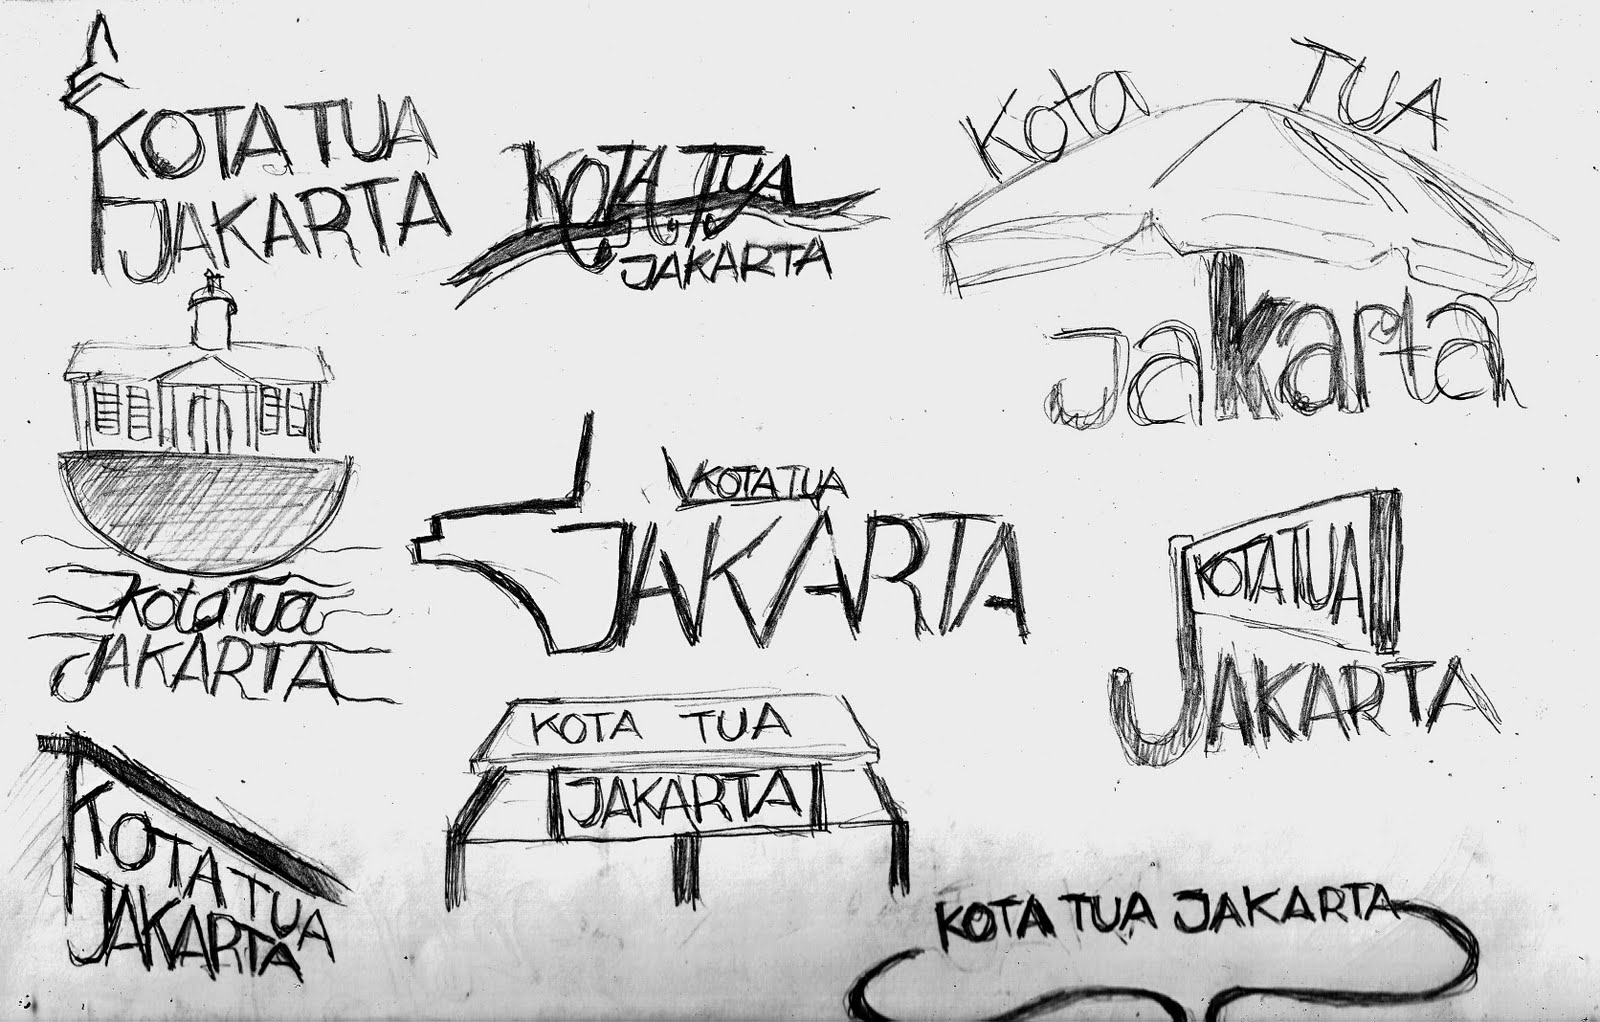 KOTA TUA
JAKARTA
KOTA TUA
JAKARTA
Kota TUA
jakarta
Kota Tua
JAKARTA
KOTA TUA
JAKARTA
KOTA TUA
JAKARTA
KOTA TUA
JAKARTA
KOTA TUA
JAKARTA
KOTA TUA JAKARTA